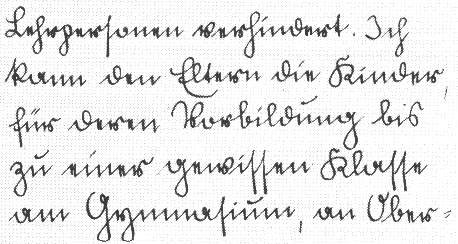 Lehrpersonen verhindert. Ich
kann den Eltern die Kinder,
für deren Vorbildung bis
zu einer gewissen Klasse
am Gymnasium, an Ober-